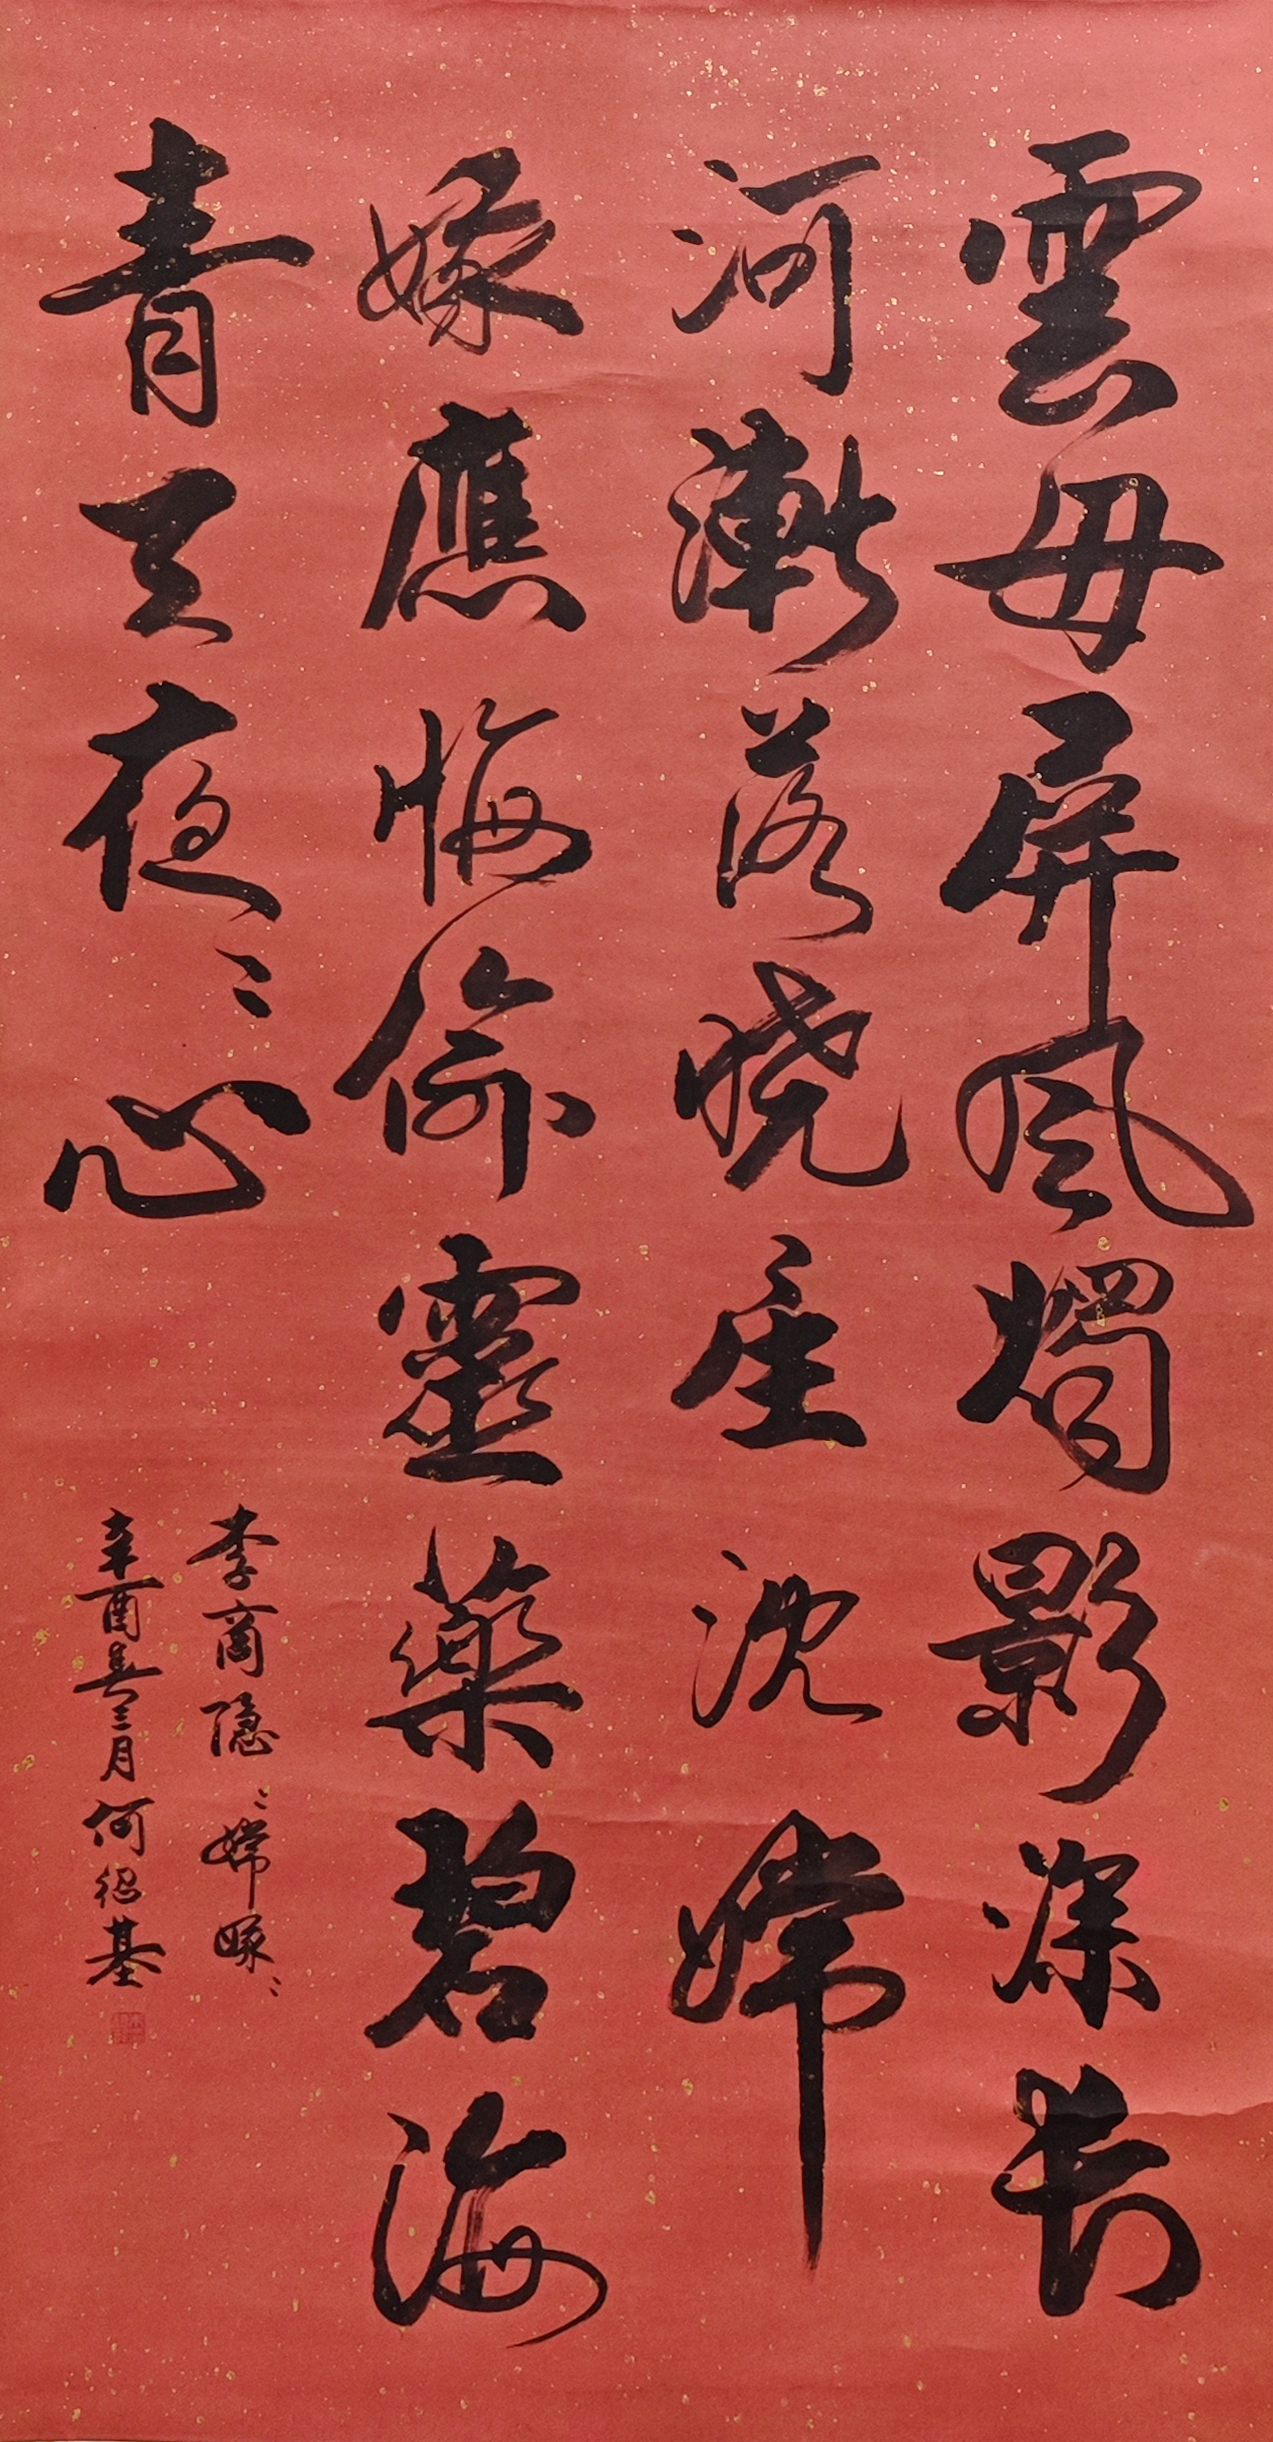 雲母屏風燭影深長
河漸落曉星沈嫦
娥應悔偷靈藥碧海
青天夜〻心
李商隐〻嫦娥〻
辛酉年三月何绍基